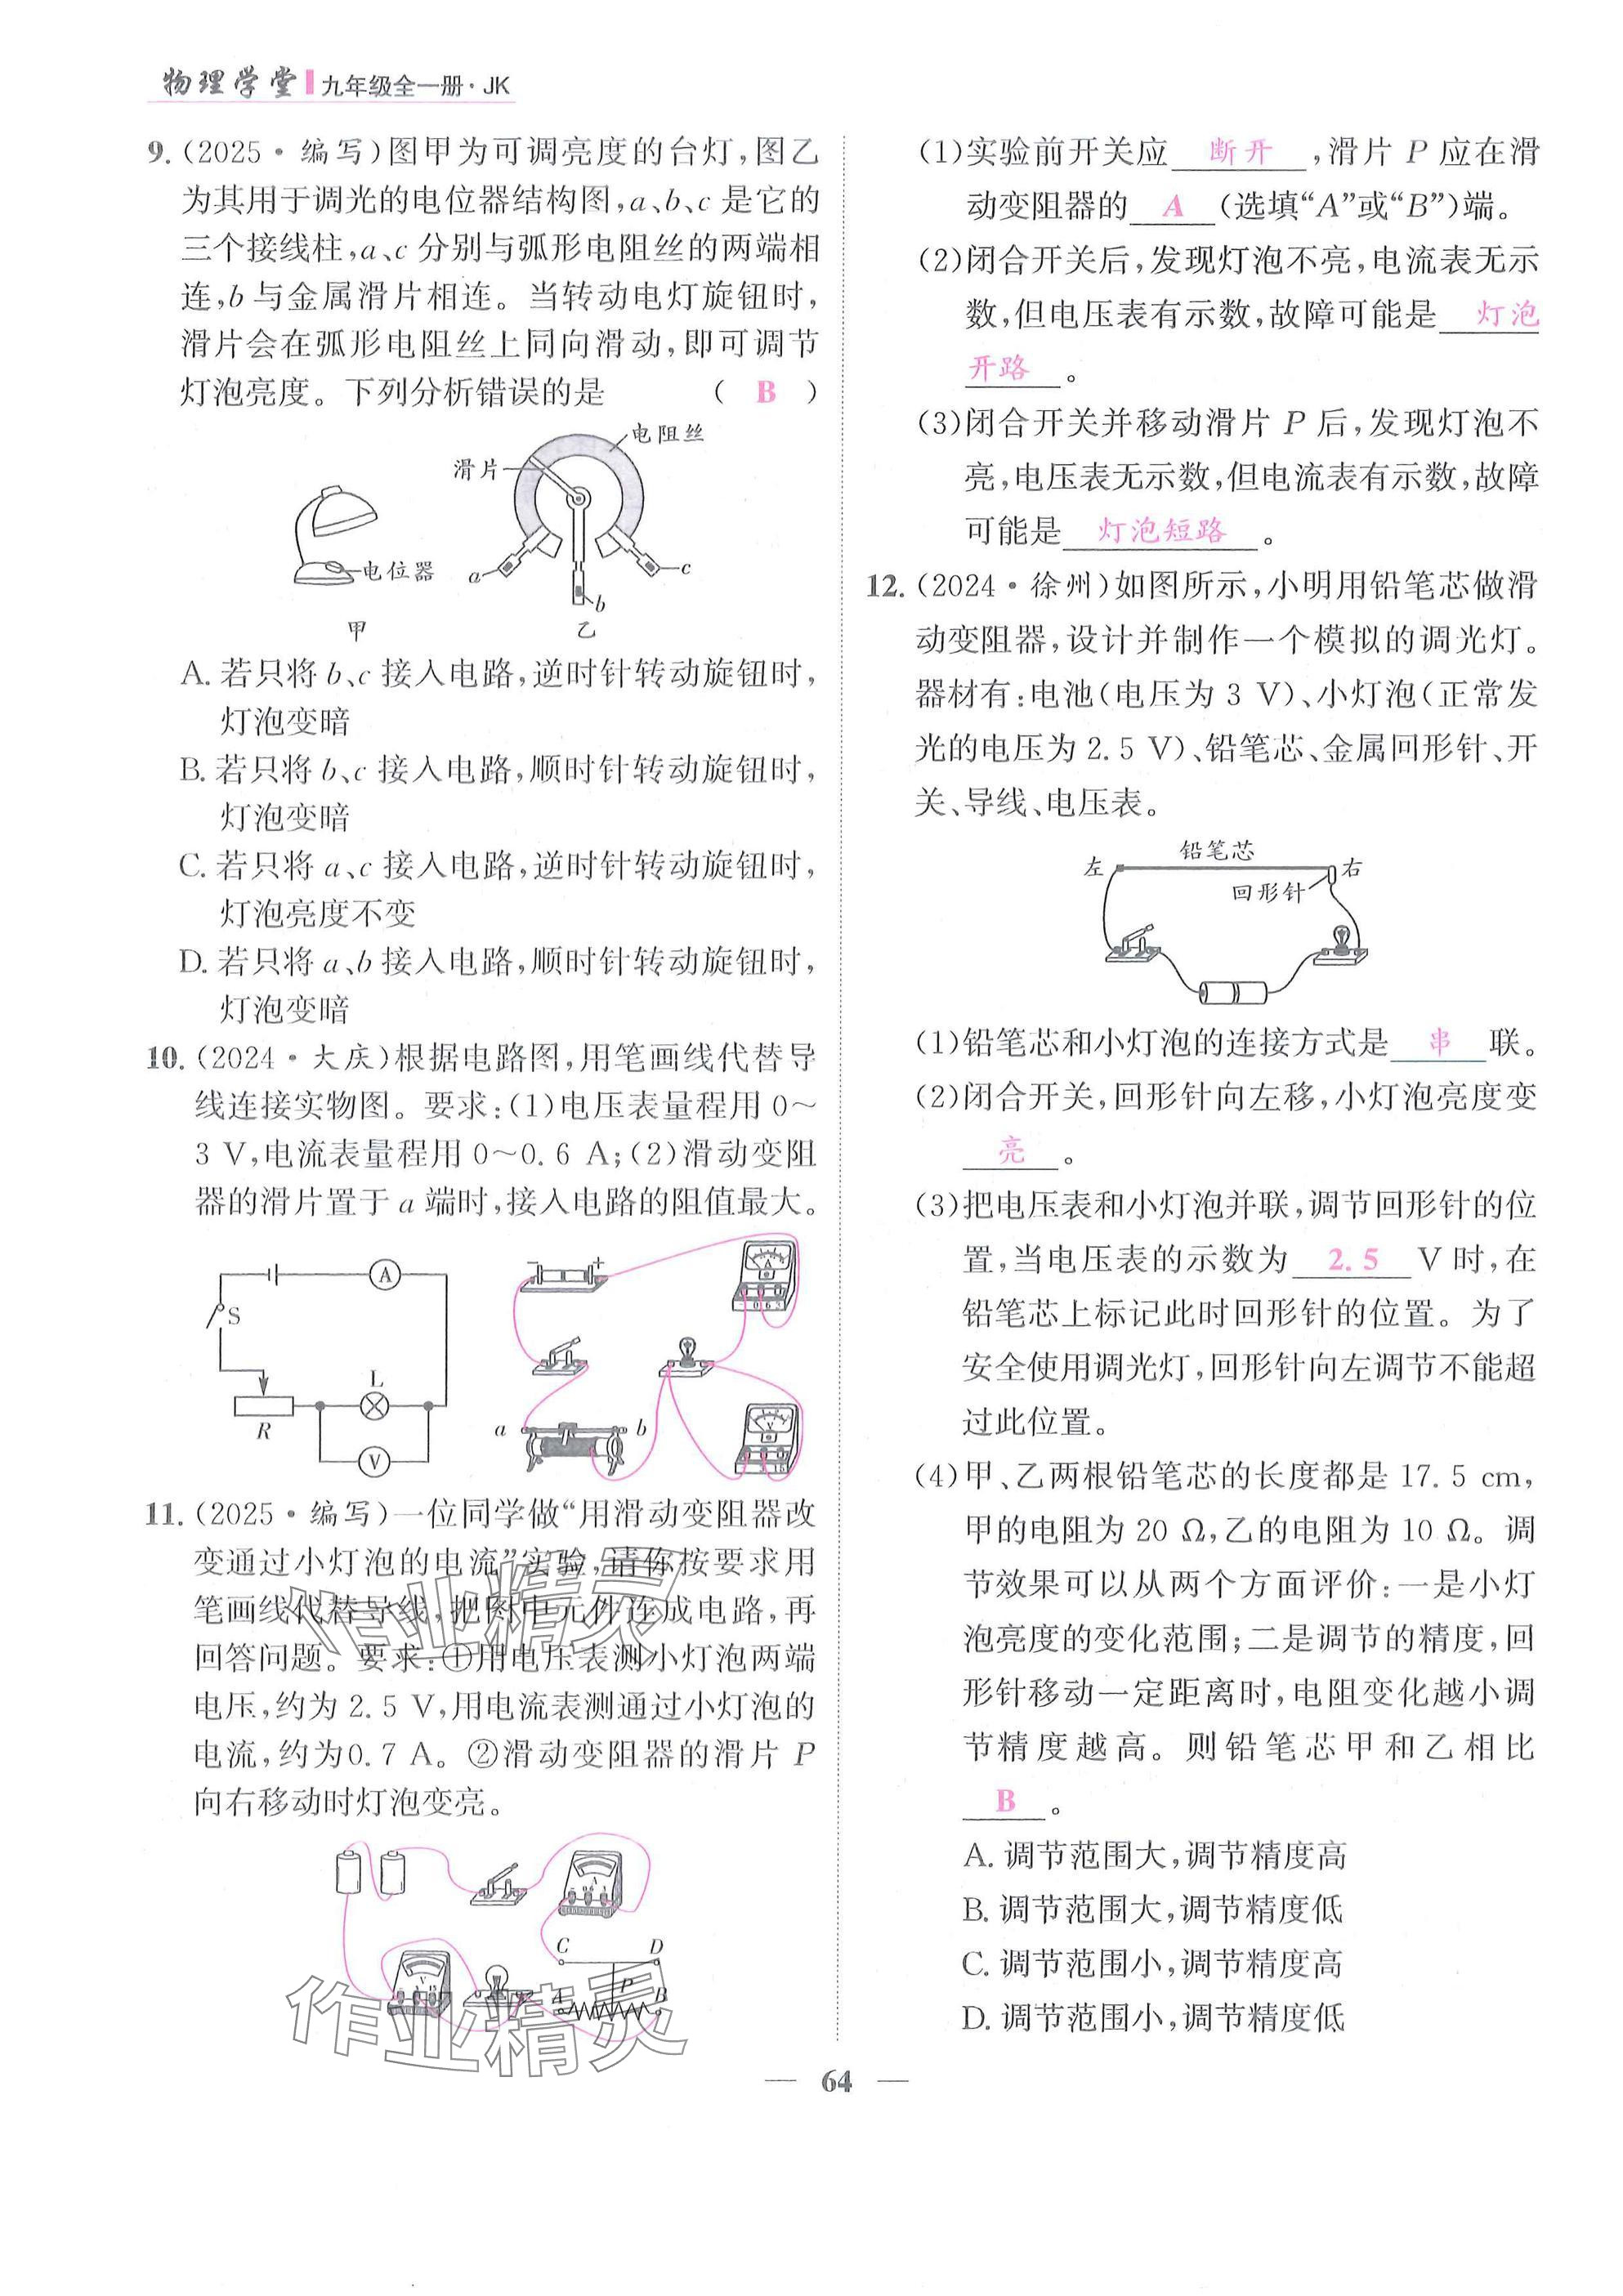 物理学堂 九年级全一册·JK
9. (2025·编写)图甲为可调亮度的台灯,图乙
为其用于调光的电位器结构图,a、b、c 是它的
三个接线柱,a、c 分别与弧形电阻丝的两端相
连,b 与金属滑片相连。当转动电灯旋钮时,
滑片会在弧形电阻丝上同向滑动,即可调节
灯泡亮度。下列分析错误的是 ( B )
电阻丝
滑片
电位器
a
c
b
甲
乙
A. 若只将 b、c 接入电路,逆时针转动旋钮时,
灯泡变暗
B. 若只将 b、c 接入电路,顺时针转动旋钮时,
灯泡变暗
C. 若只将 a、c 接入电路,逆时针转动旋钮时,
灯泡亮度不变
D. 若只将 a、b 接入电路,顺时针转动旋钮时,
灯泡变暗
10. (2024·大庆)根据电路图,用笔画线代替导
线连接实物图。要求:(1)电压表量程用 0~
3 V,电流表量程用 0~0.6 A;(2)滑动变阻
器的滑片置于 a 端时,接入电路的阻值最大。
A
S
L
R
V
− +
A
a
b
V
11. (2025·编写)一位同学做“用滑动变阻器改
变通过小灯泡的电流”实验,请你按要求用
笔画线代替导线,把图中元件连成电路,再
回答问题。要求:①用电压表测小灯泡两端
电压,约为 2.5 V,用电流表测通过小灯泡的
电流,约为0.7 A。②滑动变阻器的滑片 P
向右移动时灯泡变亮。
A
V
C
D
P
A
B
作业精灵
作业精灵
(1)实验前开关应 断开 ,滑片 P 应在滑
动变阻器的 A (选填“A”或“B”)端。
(2)闭合开关后,发现灯泡不亮,电流表无示
数,但电压表有示数,故障可能是 灯泡
开路 。
(3)闭合开关并移动滑片 P 后,发现灯泡不
亮,电压表无示数,但电流表有示数,故障
可能是 灯泡短路 。
12. (2024·徐州)如图所示,小明用铅笔芯做滑
动变阻器,设计并制作一个模拟的调光灯。
器材有:电池(电压为 3 V)、小灯泡(正常发
光的电压为 2.5 V)、铅笔芯、金属回形针、开
关、导线、电压表。
左
铅笔芯
右
回形针
(1)铅笔芯和小灯泡的连接方式是 串 联。
(2)闭合开关,回形针向左移,小灯泡亮度变
亮 。
(3)把电压表和小灯泡并联,调节回形针的位
置,当电压表的示数为 2.5 V 时,在
铅笔芯上标记此时回形针的位置。为了
安全使用调光灯,回形针向左调节不能超
过此位置。
(4)甲、乙两根铅笔芯的长度都是 17.5 cm,
甲的电阻为 20 Ω,乙的电阻为 10 Ω。调
节效果可以从两个方面评价:一是小灯
泡亮度的变化范围;二是调节的精度,回
形针移动一定距离时,电阻变化越小调
节精度越高。则铅笔芯甲和乙相比
B 。
A. 调节范围大,调节精度高
B. 调节范围大,调节精度低
C. 调节范围小,调节精度高
D. 调节范围小,调节精度低
— 64 —